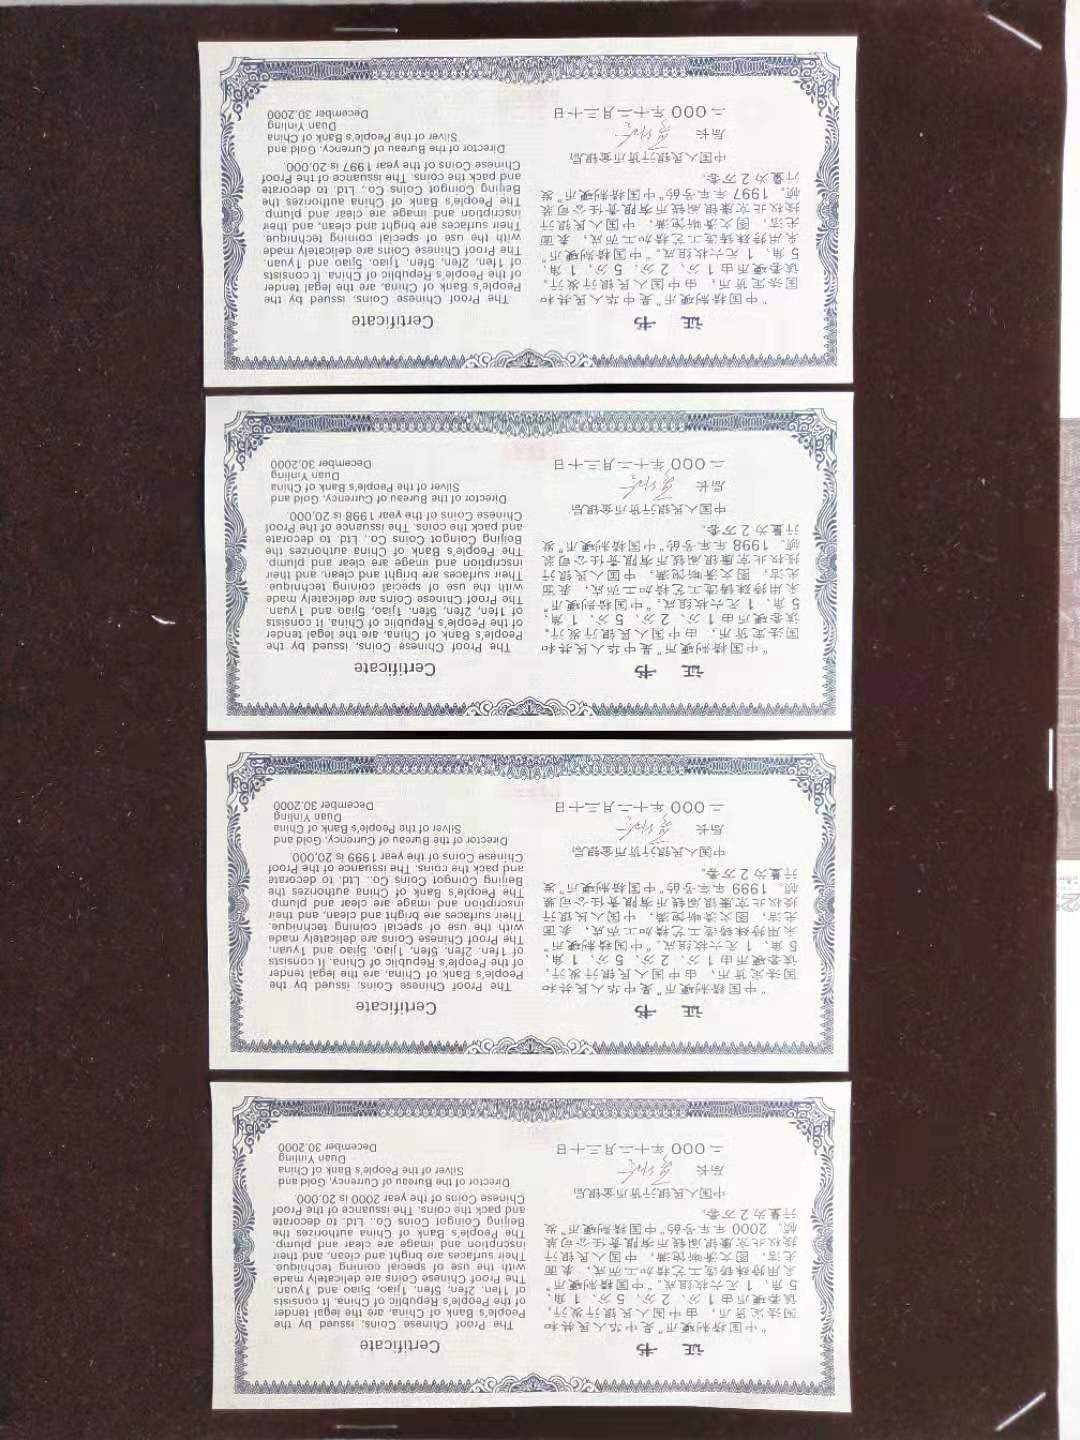 证 书
“中国精制硬币”是中华人民共和
国法定货币,由中国人民银行发行。
该套硬币由1分、2分、5分、1角、
5角、1元六枚组成。“中国精制硬币”
采用特殊铸造工艺精加工而成,表面
光洁,图文清晰饱满,中国人民银行
授权北京康银阁钱币有限责任公司装
帧。2000年年号的“中国精制硬币”发
行量为2万套。
中国人民银行货币金银局
局长
二000年十二月三十日
Certificate
The Proof Chinese Coins, issued by the
People's Bank of China, are the legal tender
of the People's Republic of China. It consists
of 1fen, 2fen, 5fen, 1jiao, 5jiao and 1yuan.
The Proof Chinese Coins are delicately made
with the use of special coining technique.
Their surfaces are bright and clean, and their
inscription and image are clear and plump.
The People's Bank of China authorizes the
Beijing Coingot Coins Co., Ltd. to decorate
and pack the coins. The issuance of the Proof
Chinese Coins of the year 2000 is 20,000.
Director of the Bureau of Currency, Gold and
Silver of the People's Bank of China
Duan Yinling
December 30,2000
证 书
“中国精制硬币”是中华人民共和
国法定货币,由中国人民银行发行。
该套硬币由1分、2分、5分、1角、
5角、1元六枚组成。“中国精制硬币”
采用特殊铸造工艺精加工而成,表面
光洁,图文清晰饱满,中国人民银行
授权北京康银阁钱币有限责任公司装
帧。1999年年号的“中国精制硬币”发
行量为2万套。
中国人民银行货币金银局
局长
二000年十二月三十日
Certificate
The Proof Chinese Coins, issued by the
People's Bank of China, are the legal tender
of the People's Republic of China. It consists
of 1fen, 2fen, 5fen, 1jiao, 5jiao and 1yuan.
The Proof Chinese Coins are delicately made
with the use of special coining technique.
Their surfaces are bright and clean, and their
inscription and image are clear and plump.
The People's Bank of China authorizes the
Beijing Coingot Coins Co., Ltd. to decorate
and pack the coins. The issuance of the Proof
Chinese Coins of the year 1999 is 20,000.
Director of the Bureau of Currency, Gold and
Silver of the People's Bank of China
Duan Yinling
December 30,2000
证 书
“中国精制硬币”是中华人民共和
国法定货币,由中国人民银行发行。
该套硬币由1分、2分、5分、1角、
5角、1元六枚组成。“中国精制硬币”
采用特殊铸造工艺精加工而成,表面
光洁,图文清晰饱满,中国人民银行
授权北京康银阁钱币有限责任公司装
帧。1998年年号的“中国精制硬币”发
行量为2万套。
中国人民银行货币金银局
局长
二000年十二月三十日
Certificate
The Proof Chinese Coins, issued by the
People's Bank of China, are the legal tender
of the People's Republic of China. It consists
of 1fen, 2fen, 5fen, 1jiao, 5jiao and 1yuan.
The Proof Chinese Coins are delicately made
with the use of special coining technique.
Their surfaces are bright and clean, and their
inscription and image are clear and plump.
The People's Bank of China authorizes the
Beijing Coingot Coins Co., Ltd. to decorate
and pack the coins. The issuance of the Proof
Chinese Coins of the year 1998 is 20,000.
Director of the Bureau of Currency, Gold and
Silver of the People's Bank of China
Duan Yinling
December 30,2000
证 书
“中国精制硬币”是中华人民共和
国法定货币,由中国人民银行发行。
该套硬币由1分、2分、5分、1角、
5角、1元六枚组成。“中国精制硬币”
采用特殊铸造工艺精加工而成,表面
光洁,图文清晰饱满,中国人民银行
授权北京康银阁钱币有限责任公司装
帧。1997年年号的“中国精制硬币”发
行量为2万套。
中国人民银行货币金银局
局长
二000年十二月三十日
Certificate
The Proof Chinese Coins, issued by the
People's Bank of China, are the legal tender
of the People's Republic of China. It consists
of 1fen, 2fen, 5fen, 1jiao, 5jiao and 1yuan.
The Proof Chinese Coins are delicately made
with the use of special coining technique.
Their surfaces are bright and clean, and their
inscription and image are clear and plump.
The People's Bank of China authorizes the
Beijing Coingot Coins Co., Ltd. to decorate
and pack the coins. The issuance of the Proof
Chinese Coins of the year 1997 is 20,000.
Director of the Bureau of Currency, Gold and
Silver of the People's Bank of China
Duan Yinling
December 30,2000